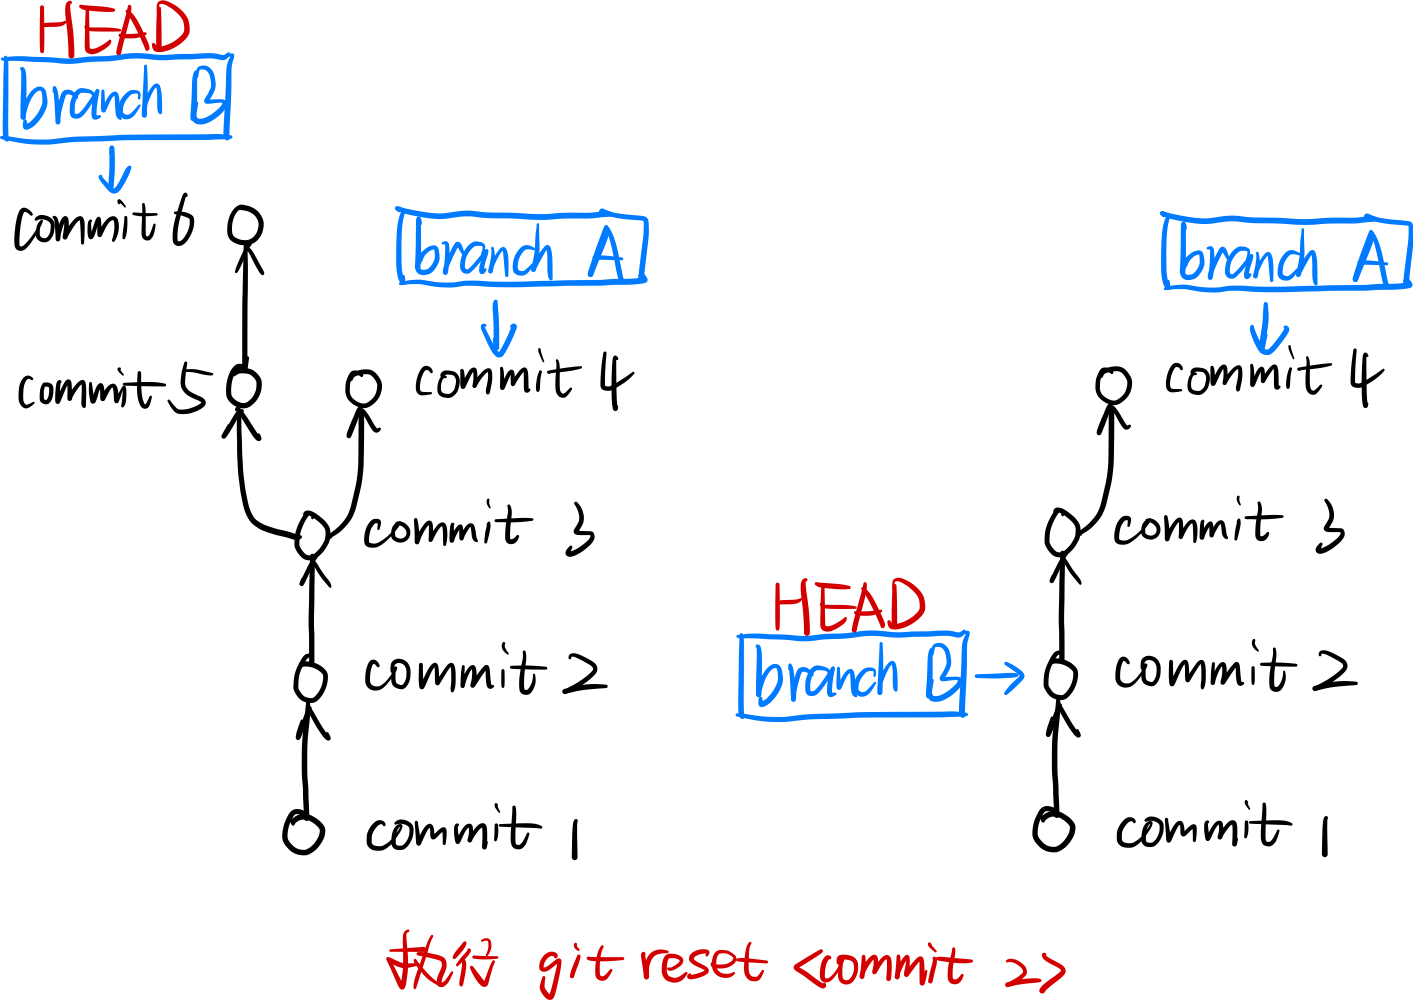 HEAD
branch B
commit 6
branch A
commit 5
commit 4
commit 3
commit 2
commit 1
branch A
commit 4
commit 3
HEAD
branch B
commit 2
commit 1
执行 git reset <commit 2>